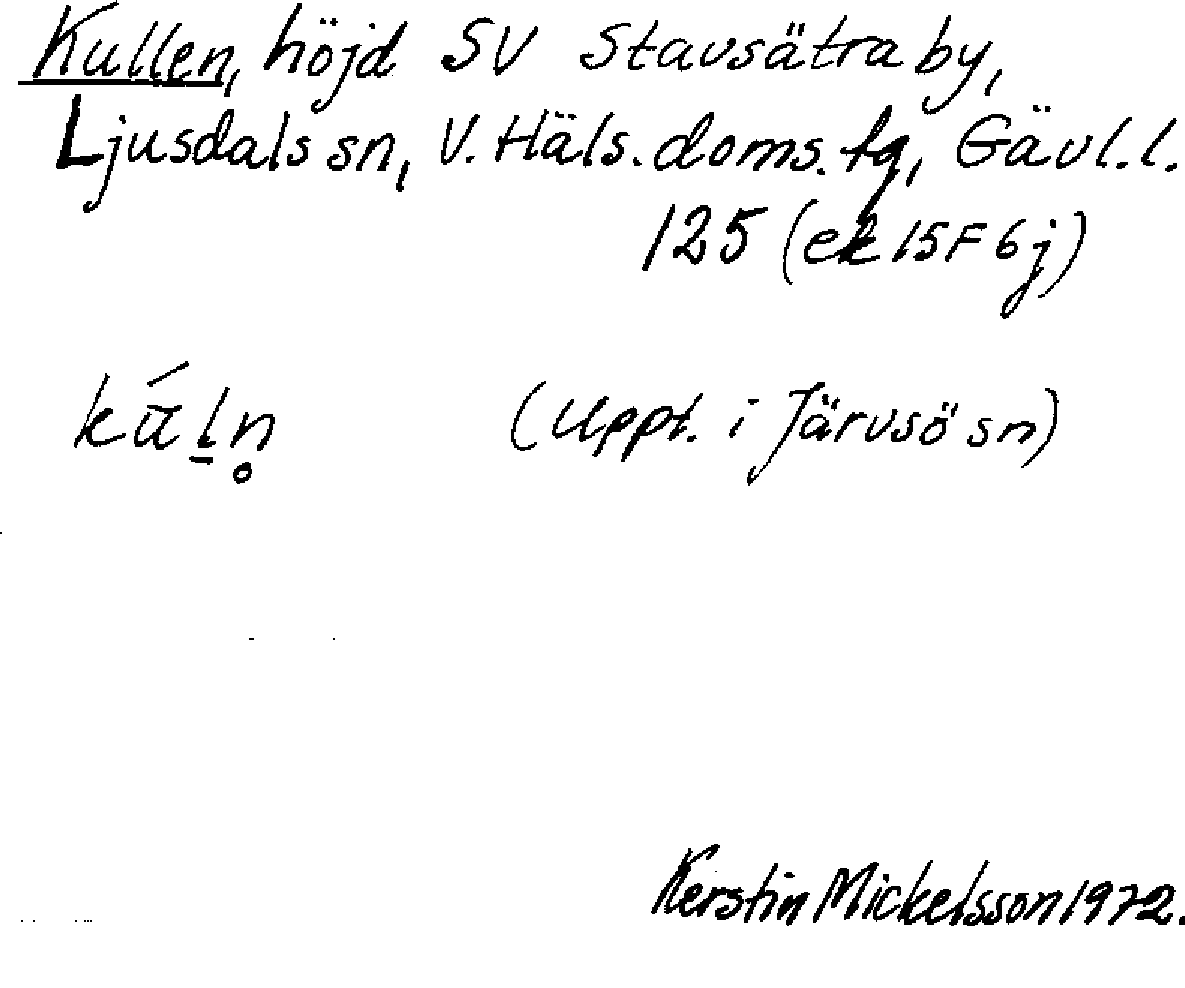 Kullen, höjd SV Stavsätra by,
Ljusdals sn, V. Häls. doms. tg, Gävl. l.
125 (ek 15F 6j)
kúl̠n̥ (Uppt. i Järvsö sn)
Kerstin Mickelsson 1972.